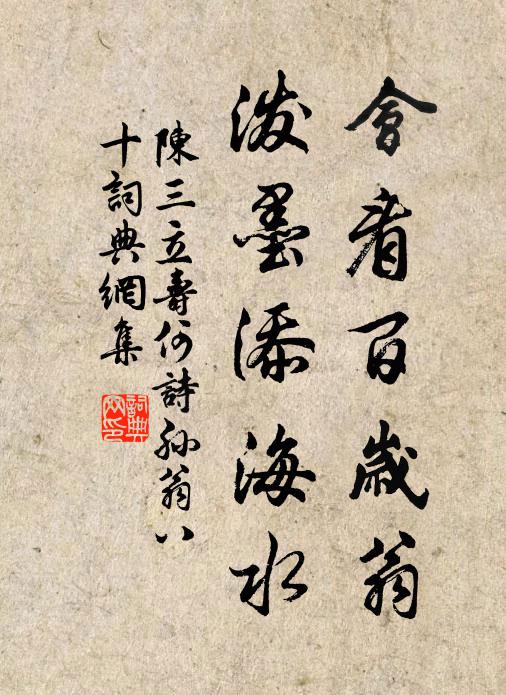 會看百歲翁
潑墨添海水
陳三立壽何詩孫翁八
十詞典網集
詞典
网印